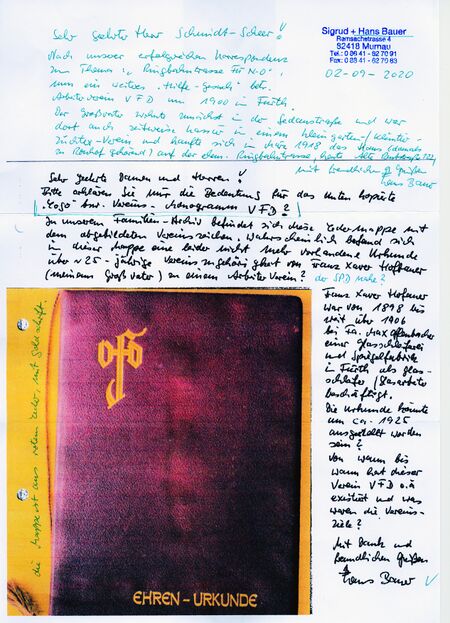 Sehr geehrter Herr Schmidt-Scheer!
Sigrud + Hans Bauer
Ramsachstrasse 4
82418 Murnau
Tel.: 0 88 41 - 62 70 91
Fax: 0 88 41 - 62 70 83
02-09-2020
Nach unserer erfolgreichen Korrespondenz
zum Thema: "Ringbahntrasse für N.O",
nun ein weiteres "Hilfe-gesuch" betr.
Arbeiterverein VFD um 1900 in Fürth.
Der Großvater wohnte zunächst in der Sedanstraße und war
dort auch zeitweise Kassier in einem Kleingarten-/Kleintier-
züchter-Verein und kaufte sich in 1918 das Haus (damals
zu Ronhof gehörend) auf der dem. Ringbahntrasse, heute Alte
mit freundlichen Grüßen
Hans Bauer
Sehr geehrte Damen und Herren!
Bitte erklären Sie mir die Bedeutung für das unten kopierte
"Logo" bzw. Vereins-Monogramm VFD?
In unserem Familien-Archiv befindet sich diese Ledermappe mit
dem abgebildeten Vereinszeichen, wahrscheinlich befand sich
in dieser Mappe eine leider nicht mehr vorhandene Urkunde
über ~25-jährige Vereinszugehörigkeit von Franz Xaver Hofbauer
(meinem Großvater) zu einem Arbeiter Verein? der SPD nahe?
die Mappe ist aus rotem Leder, mit Goldschrift.
EHREN - URKUNDE
Franz Xaver Hofbauer
war von 1898 bis
weit über 1906
bei Fa. Max Offenbacher
einer Glasschleiferei
und Spiegelfabrik
in Fürth als Glas-
schleifer/Glasarbeiter
beschäftigt.
Die Urkunde könnte
um ca. 1925
ausgestellt worden
sein?
Von wann bis
wann hat dieser
Verein VFD o.ä
existiert und was
waren die Vereins-
Ziele?
Mit Dank und
freundlichen Grüßen
Hans Bauer